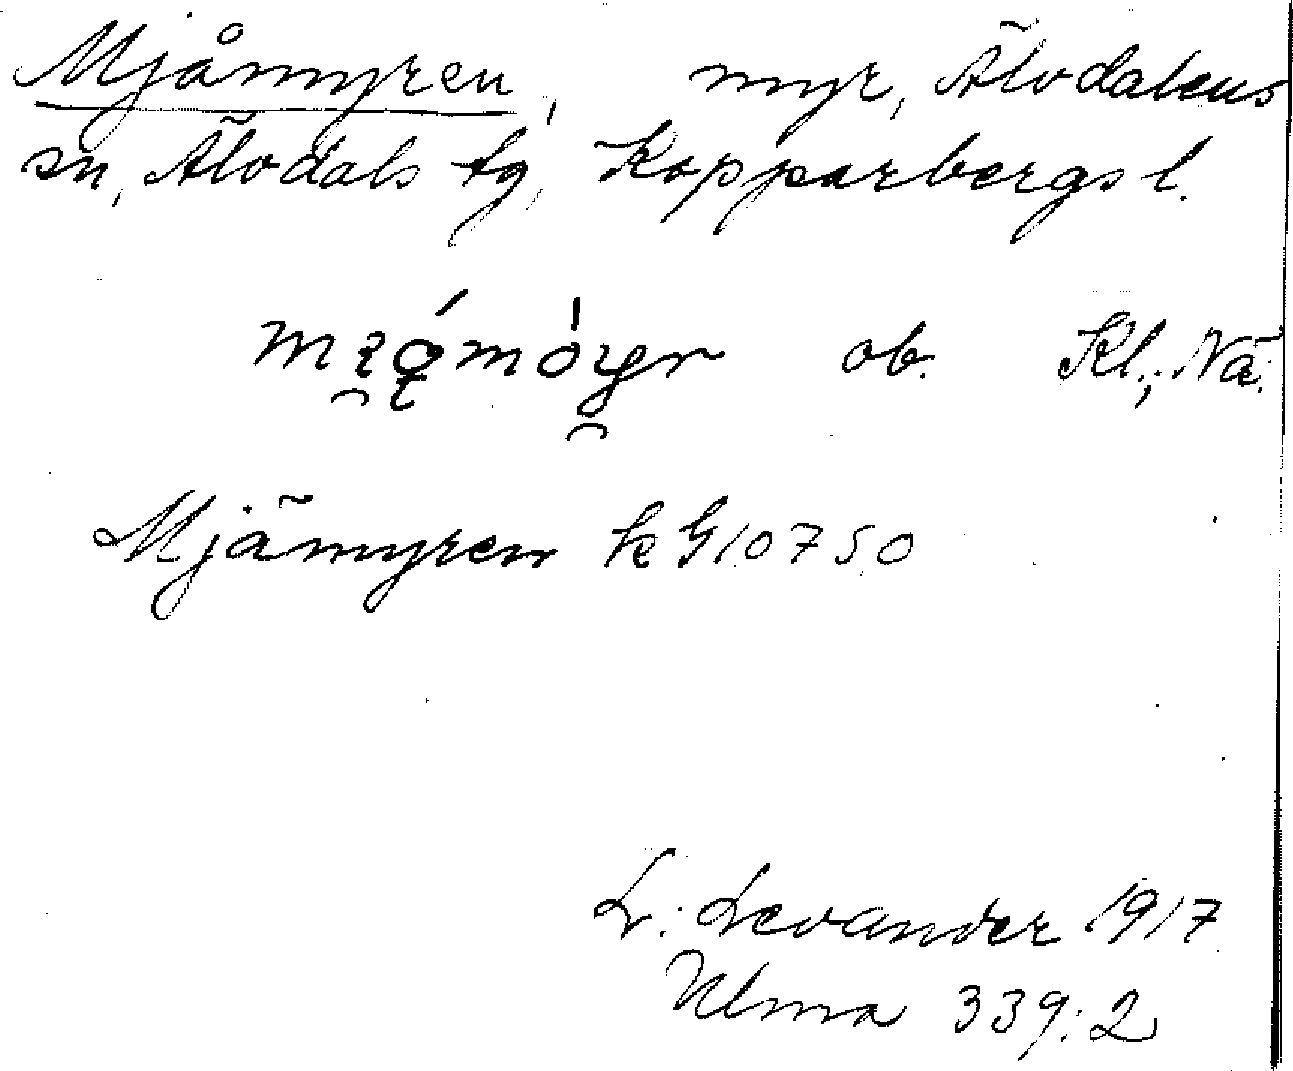 Mjåmyren, myr, Älvdalens
sn, Älvdals tg, Kopparbergs l.
ob. Kl.; Nä.
Mjämyren k G10750
L. Levander 1917
Ulma 339:2